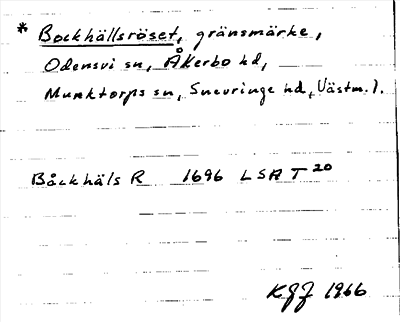 * Bockhällsröset, gränsmärke,
Odensvi sn, Åkerbo hd,
Munktorps sn, Snevringe hd, Västm. l.
Båckhäls R 1696 LSA T 20
KGJ 1966